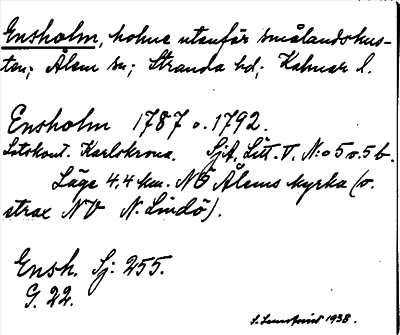 Ensholm, holme utanför smålandskus-
ten; Ålem sn; Stranda hd; Kalmar l.
Ensholm 1787 o. 1792.
Lotskont. Karlskrona. Sjöf. Litt. V. N:o 5 o. 5 b.
Läge 4,4 km. NÖ Ålems kyrka (o.
strax NV N. Lindö).
Ensh. Sj: 255.
G. 22.
1938.